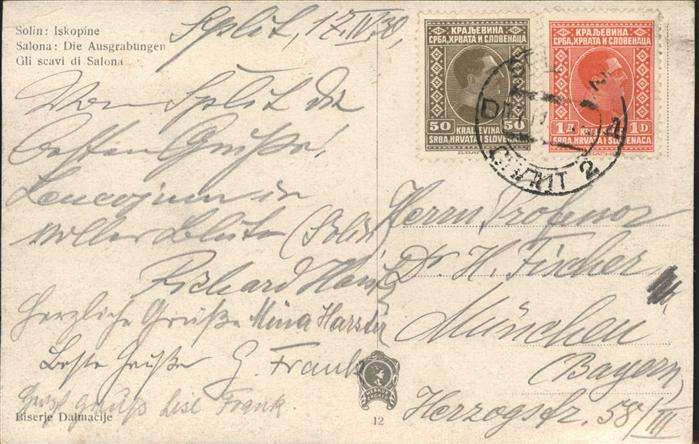 Solin: Iskopine
Salona: Die Ausgrabungen
Gli scavi di Salona
Split, 17.IV.30.
Von Split die
besten Grüße!
Leucojum in
voller Blüte (Solin)
Richard
Herzliche Grüße Mina
Beste Grüße G. Frank
grüßt Liesl Frank.
Biserje Dalmacije
12
КРАЉЕВИНА
СРБА, ХРВАТА И СЛОВЕНАЦА
50 50
KRALJEVINA
SRBA, HRVATA I SLOVENACA
КРАЉЕВИНА
СРБА, ХРВАТА И СЛОВЕНАЦА
1Д 1D
SRBA, HRVATA I SLOVENACA
СПЛИТ 2
Herrn Professor
Dr. H. Fischer
München
(Bayern)
Herzogstr. 58/III